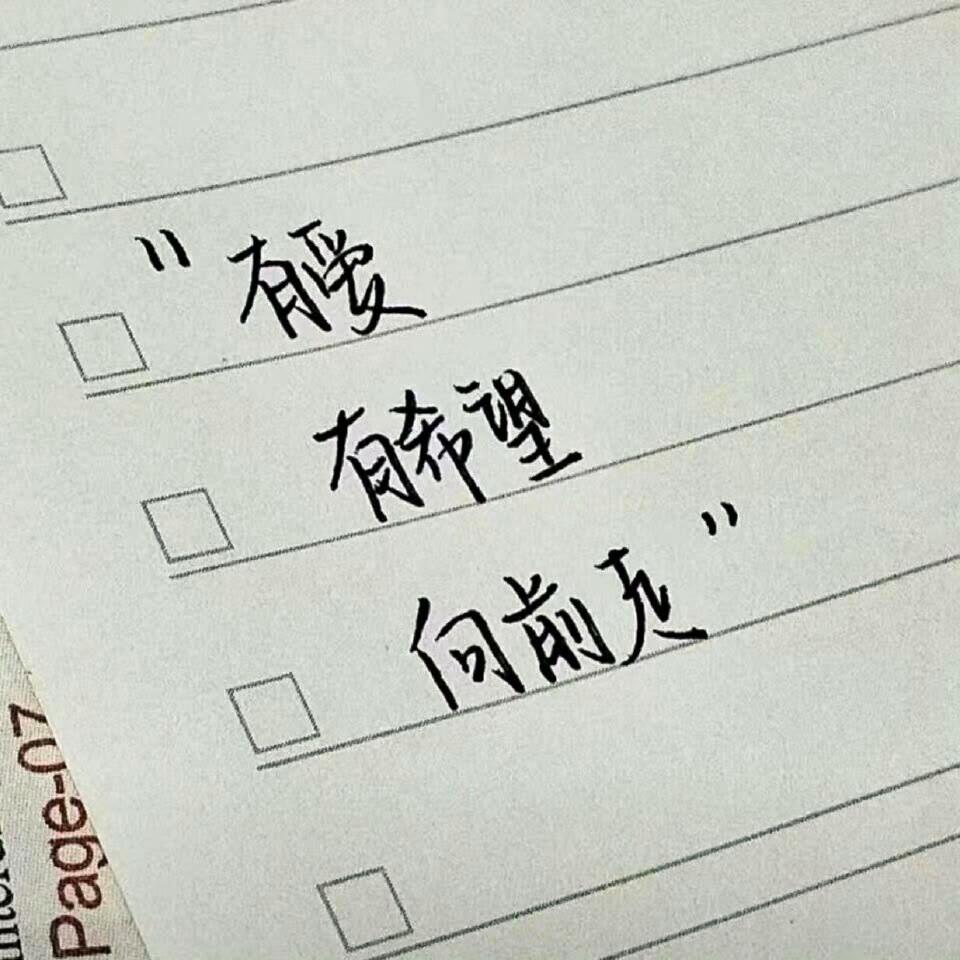 "有爱
有希望
向前走"
Page-07